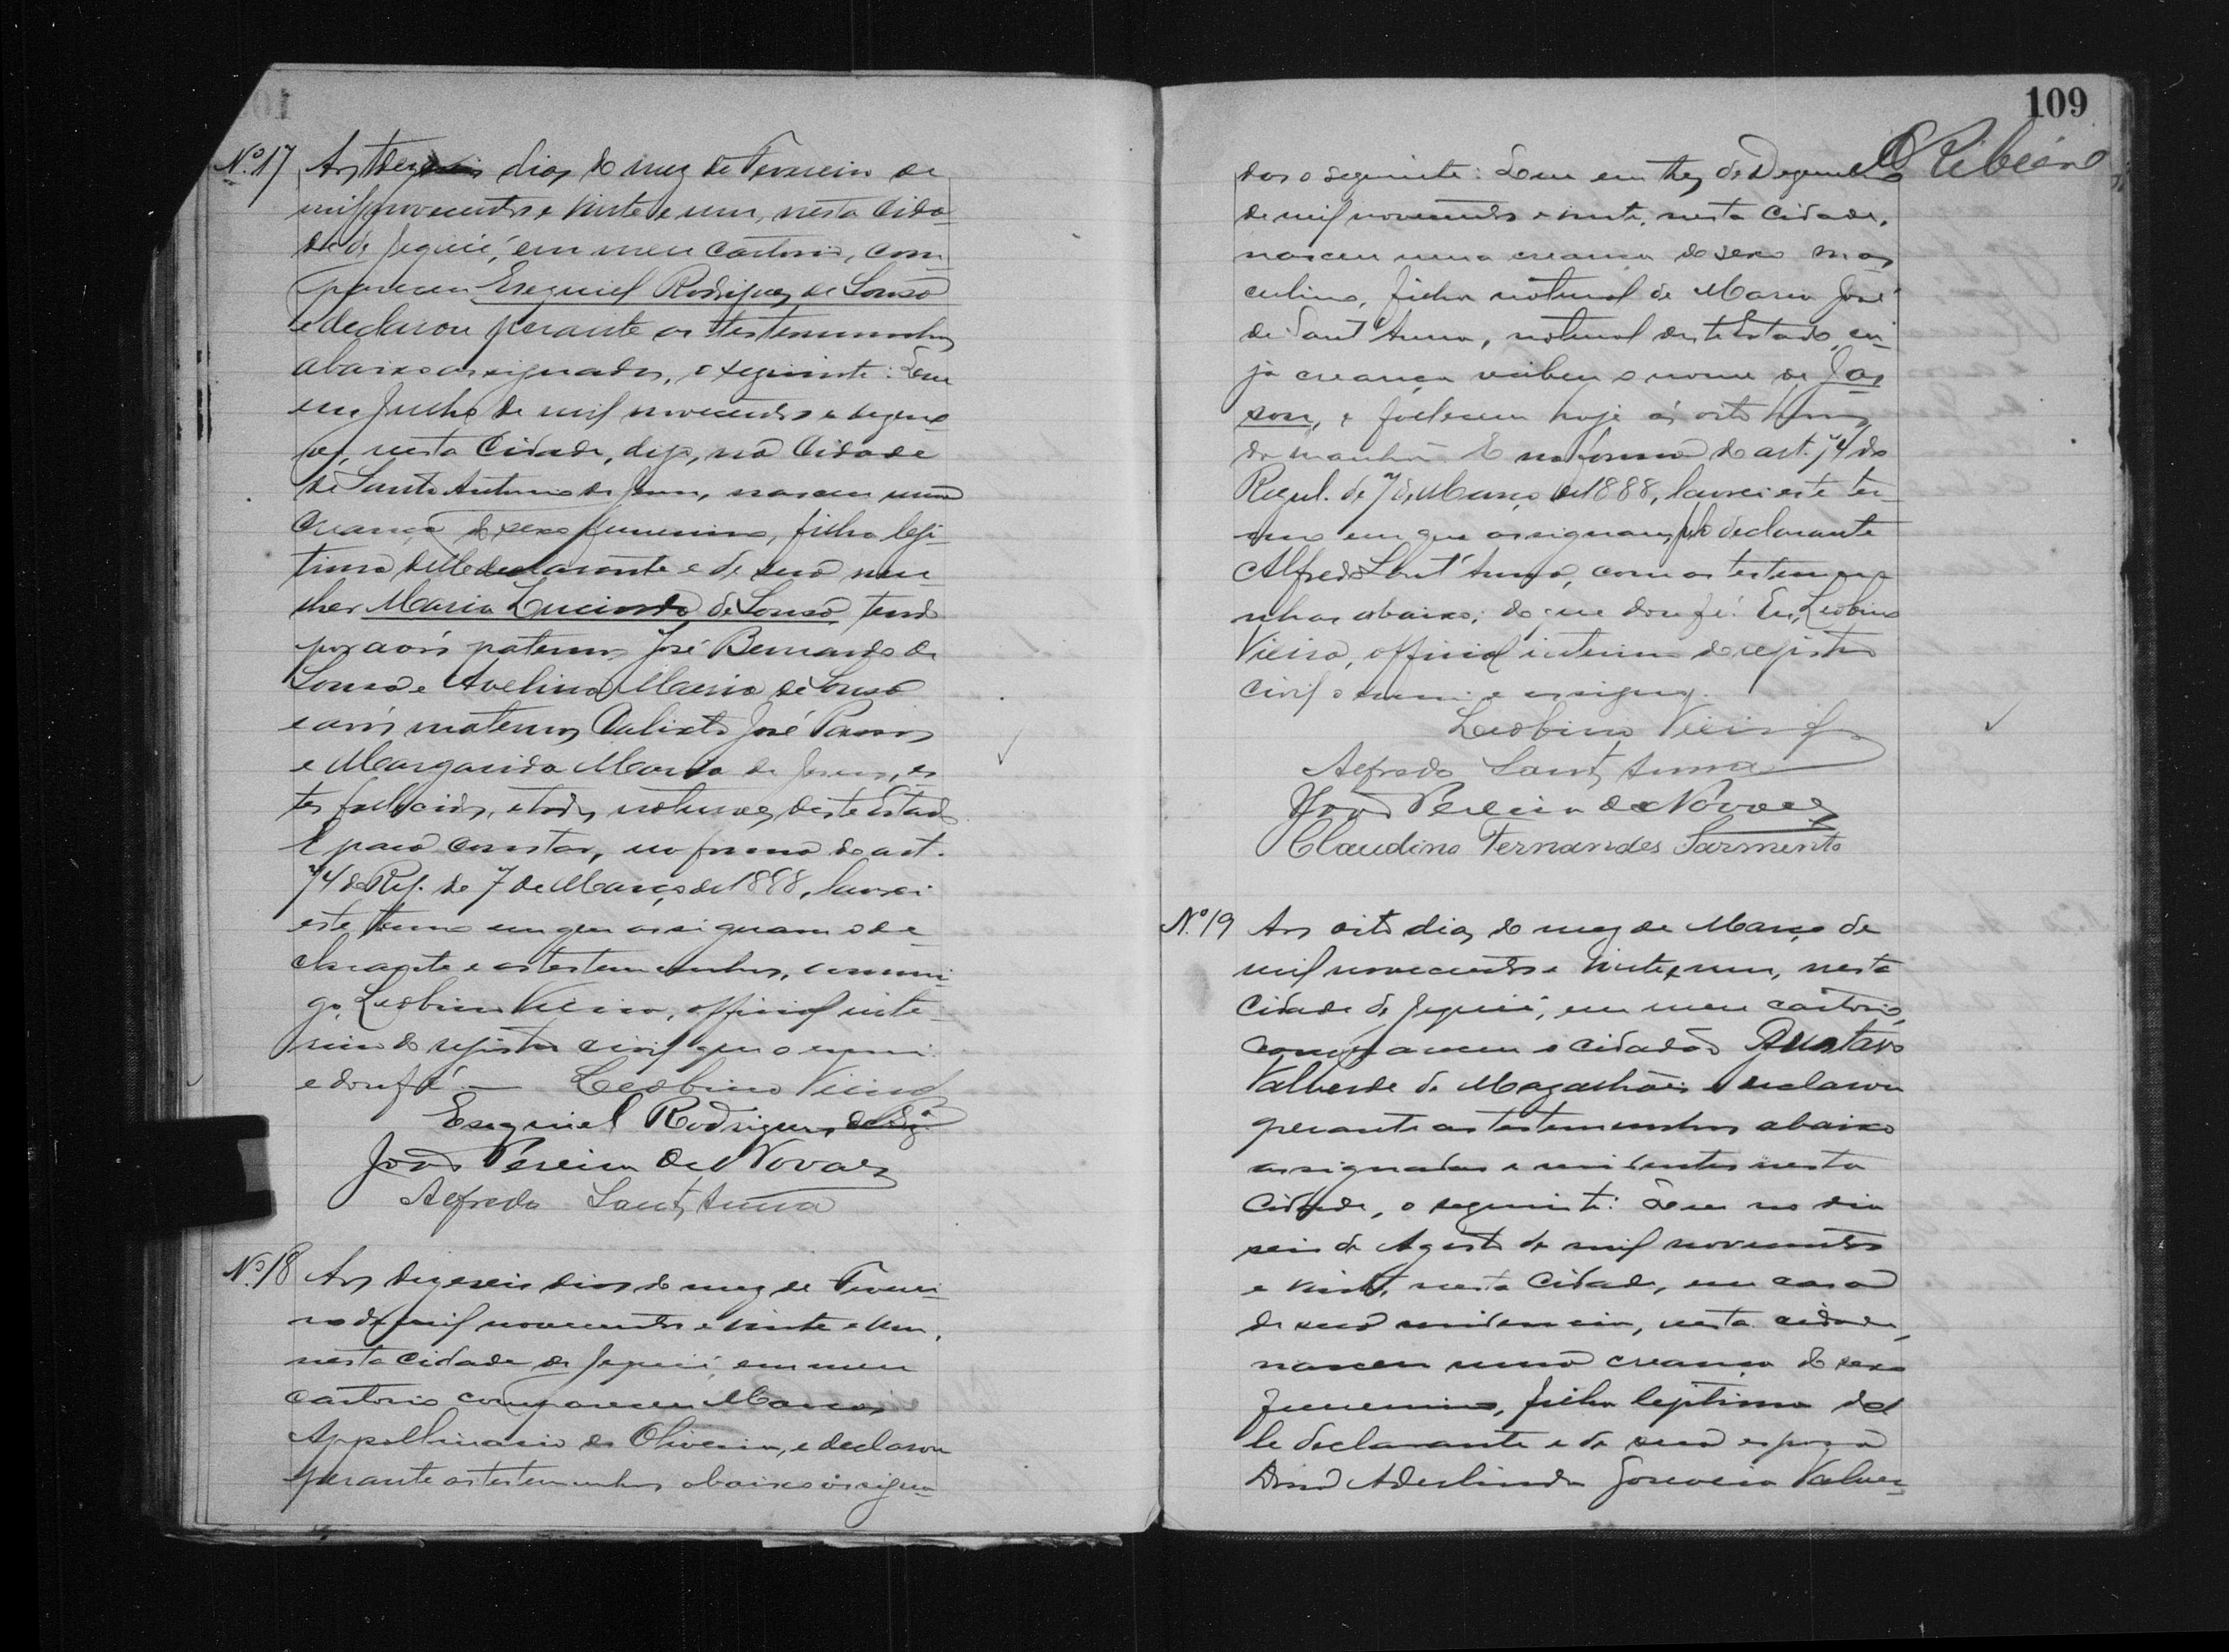 Nº 17 Aos dezeseis dias do mez de Fevereiro de
mil novecentos e vinte e um, nesta Cida-
de de Jequié, em meu Cartorio, com-
pareceu Esequiel Rodrigues de Souza
e declarou perante as testemunhas
abaixo assignadas, o seguinte: Que
em Junho de mil novecentos e dezeno-
ve, nesta Cidade, digo, na Cidade
de Santo Antonio de Jesus, nasceu uma
creança do sexo femenino, filha legi-
tima delle declarante e de sua mu-
lher Maria Lucinda de Souza, tendo
por avós paternos José Bernardo de
Souza e Avelina Maria de Souza
e avós maternos Calixto José Passos
e Margarida Maria de Jesus, es-
tes fallecidos, e todos naturaes deste Estado
E para constar, na forma do art.
74 do Reg. de 7 de Março de 1888, lavrei
este termo em que assignam o de-
clarante e as testemunhas, commi-
go, Leobino Vieira, official inte-
rino do registro civil que o escrevi
e dou fé. — Leobino Vieira
Esequiel Rodrigues
João Pereira de Novaes
Alfredo Sant'Anna
Nº 18 Aos dezeseis dias do mez de Feverei-
ro de mil novecentos e vinte e um,
nesta Cidade de Jequié, em meu
Cartorio compareceu
Appollinario de Oliveira, e declarou
perante as testemunhas abaixo assigna-
109
Ribeiro
das o seguinte: Que em tres de Dezembro
de mil novecentos e vinte, nesta Cidade,
nasceu uma creança do sexo mas-
culino, filho natural de Maria José
de Sant'Anna, natural deste Estado, cu-
ja creança recebeu o nome de Ja-
son, e falleceu hoje ás oito horas
da manhã. E na forma do art. 74 do
Regul. de 7 de Março de 1888, lavrei este ter-
mo em que assignam, pelo declarante
Alfredo Sant'Anna, com as testemu-
nhas abaixo; do que dou fé. Eu, Leobino
Vieira, official interino do registro
civil o escrevi e assigno.
Leobino Vieira
Alfredo Sant'Anna
João Pereira de Novaes
Claudino Fernandes Sarmento
Nº 19 Aos oito dias do mez de Março de
mil novecentos e vinte e um, nesta
Cidade de Jequié, em meu cartorio,
compareceu o cidadão
Valverde de Magalhães e declarou
perante as testemunhas abaixo
assignadas e residentes nesta
Cidade, o seguinte: Que no dia
seis de Agosto de mil novecentos
e vinte, nesta Cidade, em casa
de sua residencia, nesta cidade,
nasceu uma creança do sexo
femenino, filha legitima del-
le declarante e de sua esposa
Dona Aderlinda Valver-